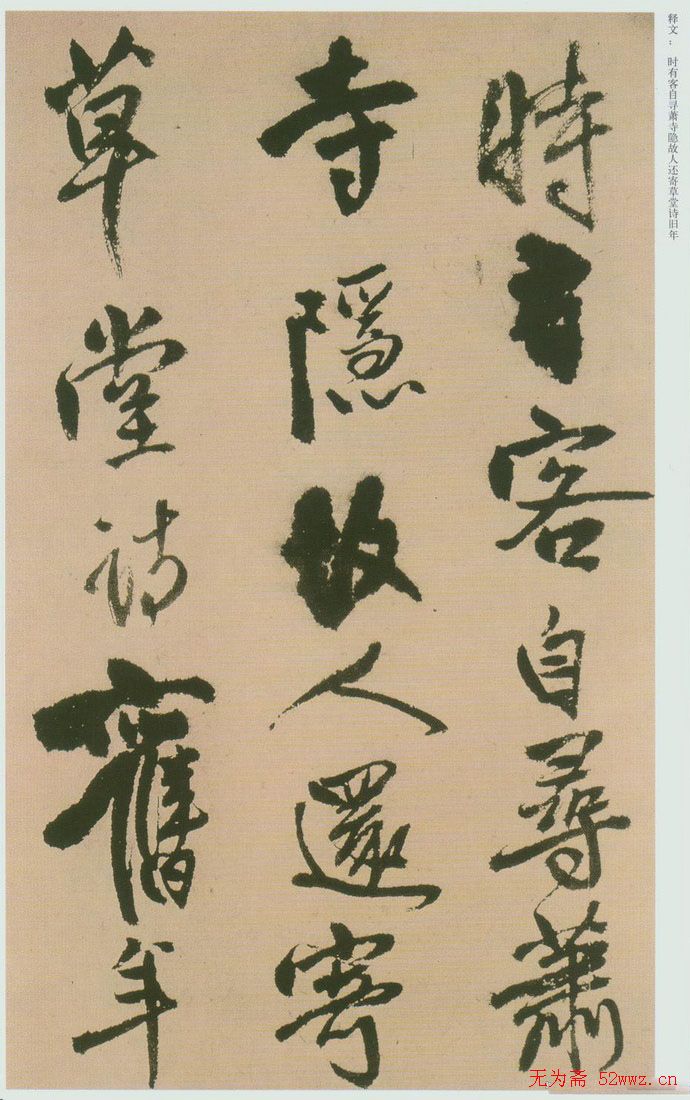 释文： 时有客自寻萧寺隐故人还寄草堂诗旧年
時有客自尋蕭
寺隱故人還寄
草堂詩舊年
无为斋 52wwz.cn